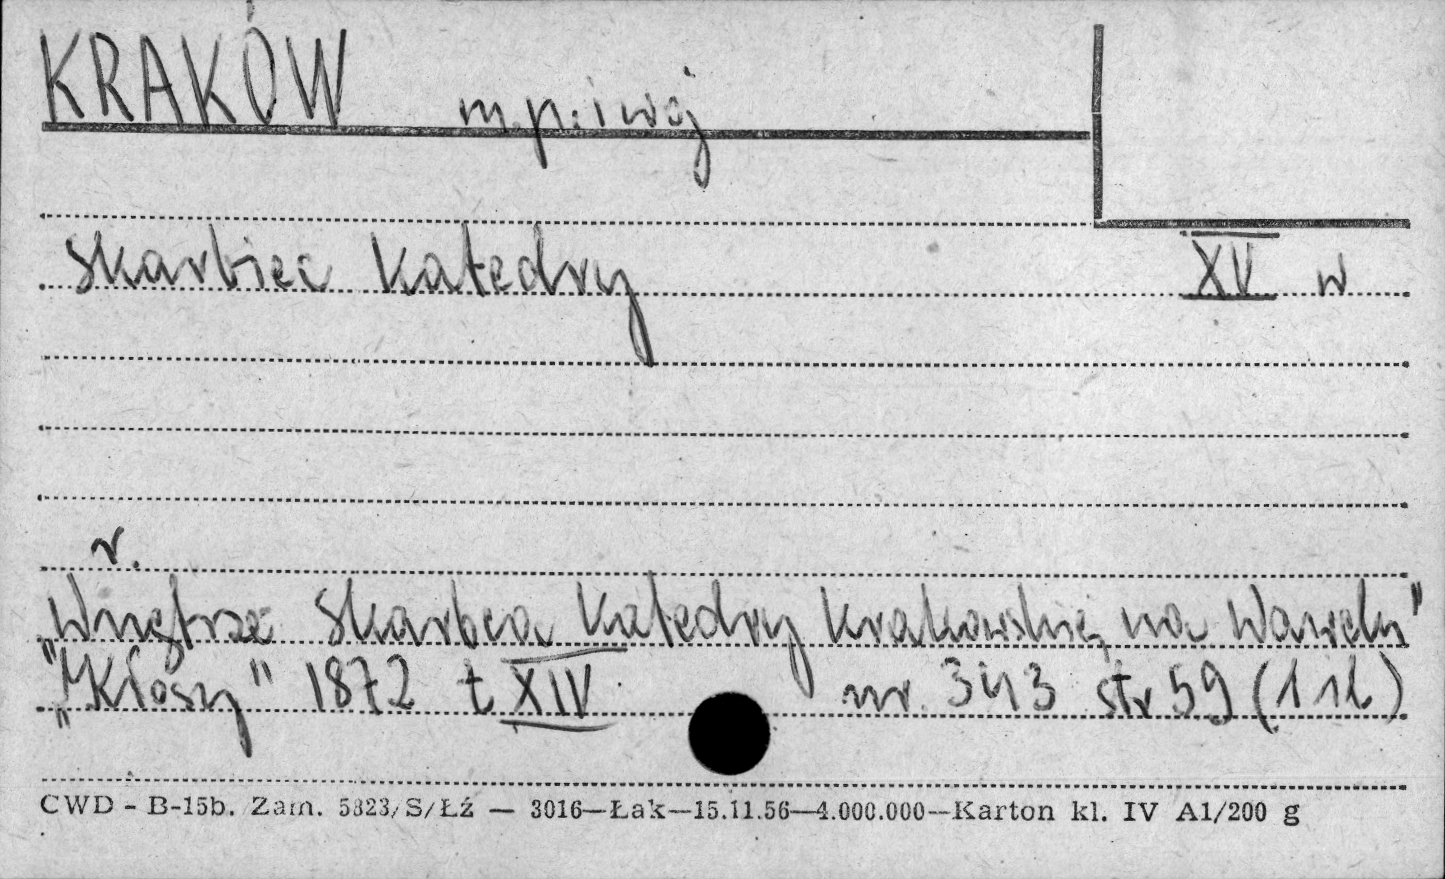 KRAKÓW m. p. i woj
Skarbiec Katedry XV w
r.
"Wnętrze Skarbca Katedry Krakowskiej na Wawelu"
"Kłosy" 1872 t XIV nr. 343 str 59 (1 il)
CWD - B-15b. Zam. 5823/S/Łź — 3016—Łak—15.11.56—4.000.000—Karton kl. IV A1/200 g